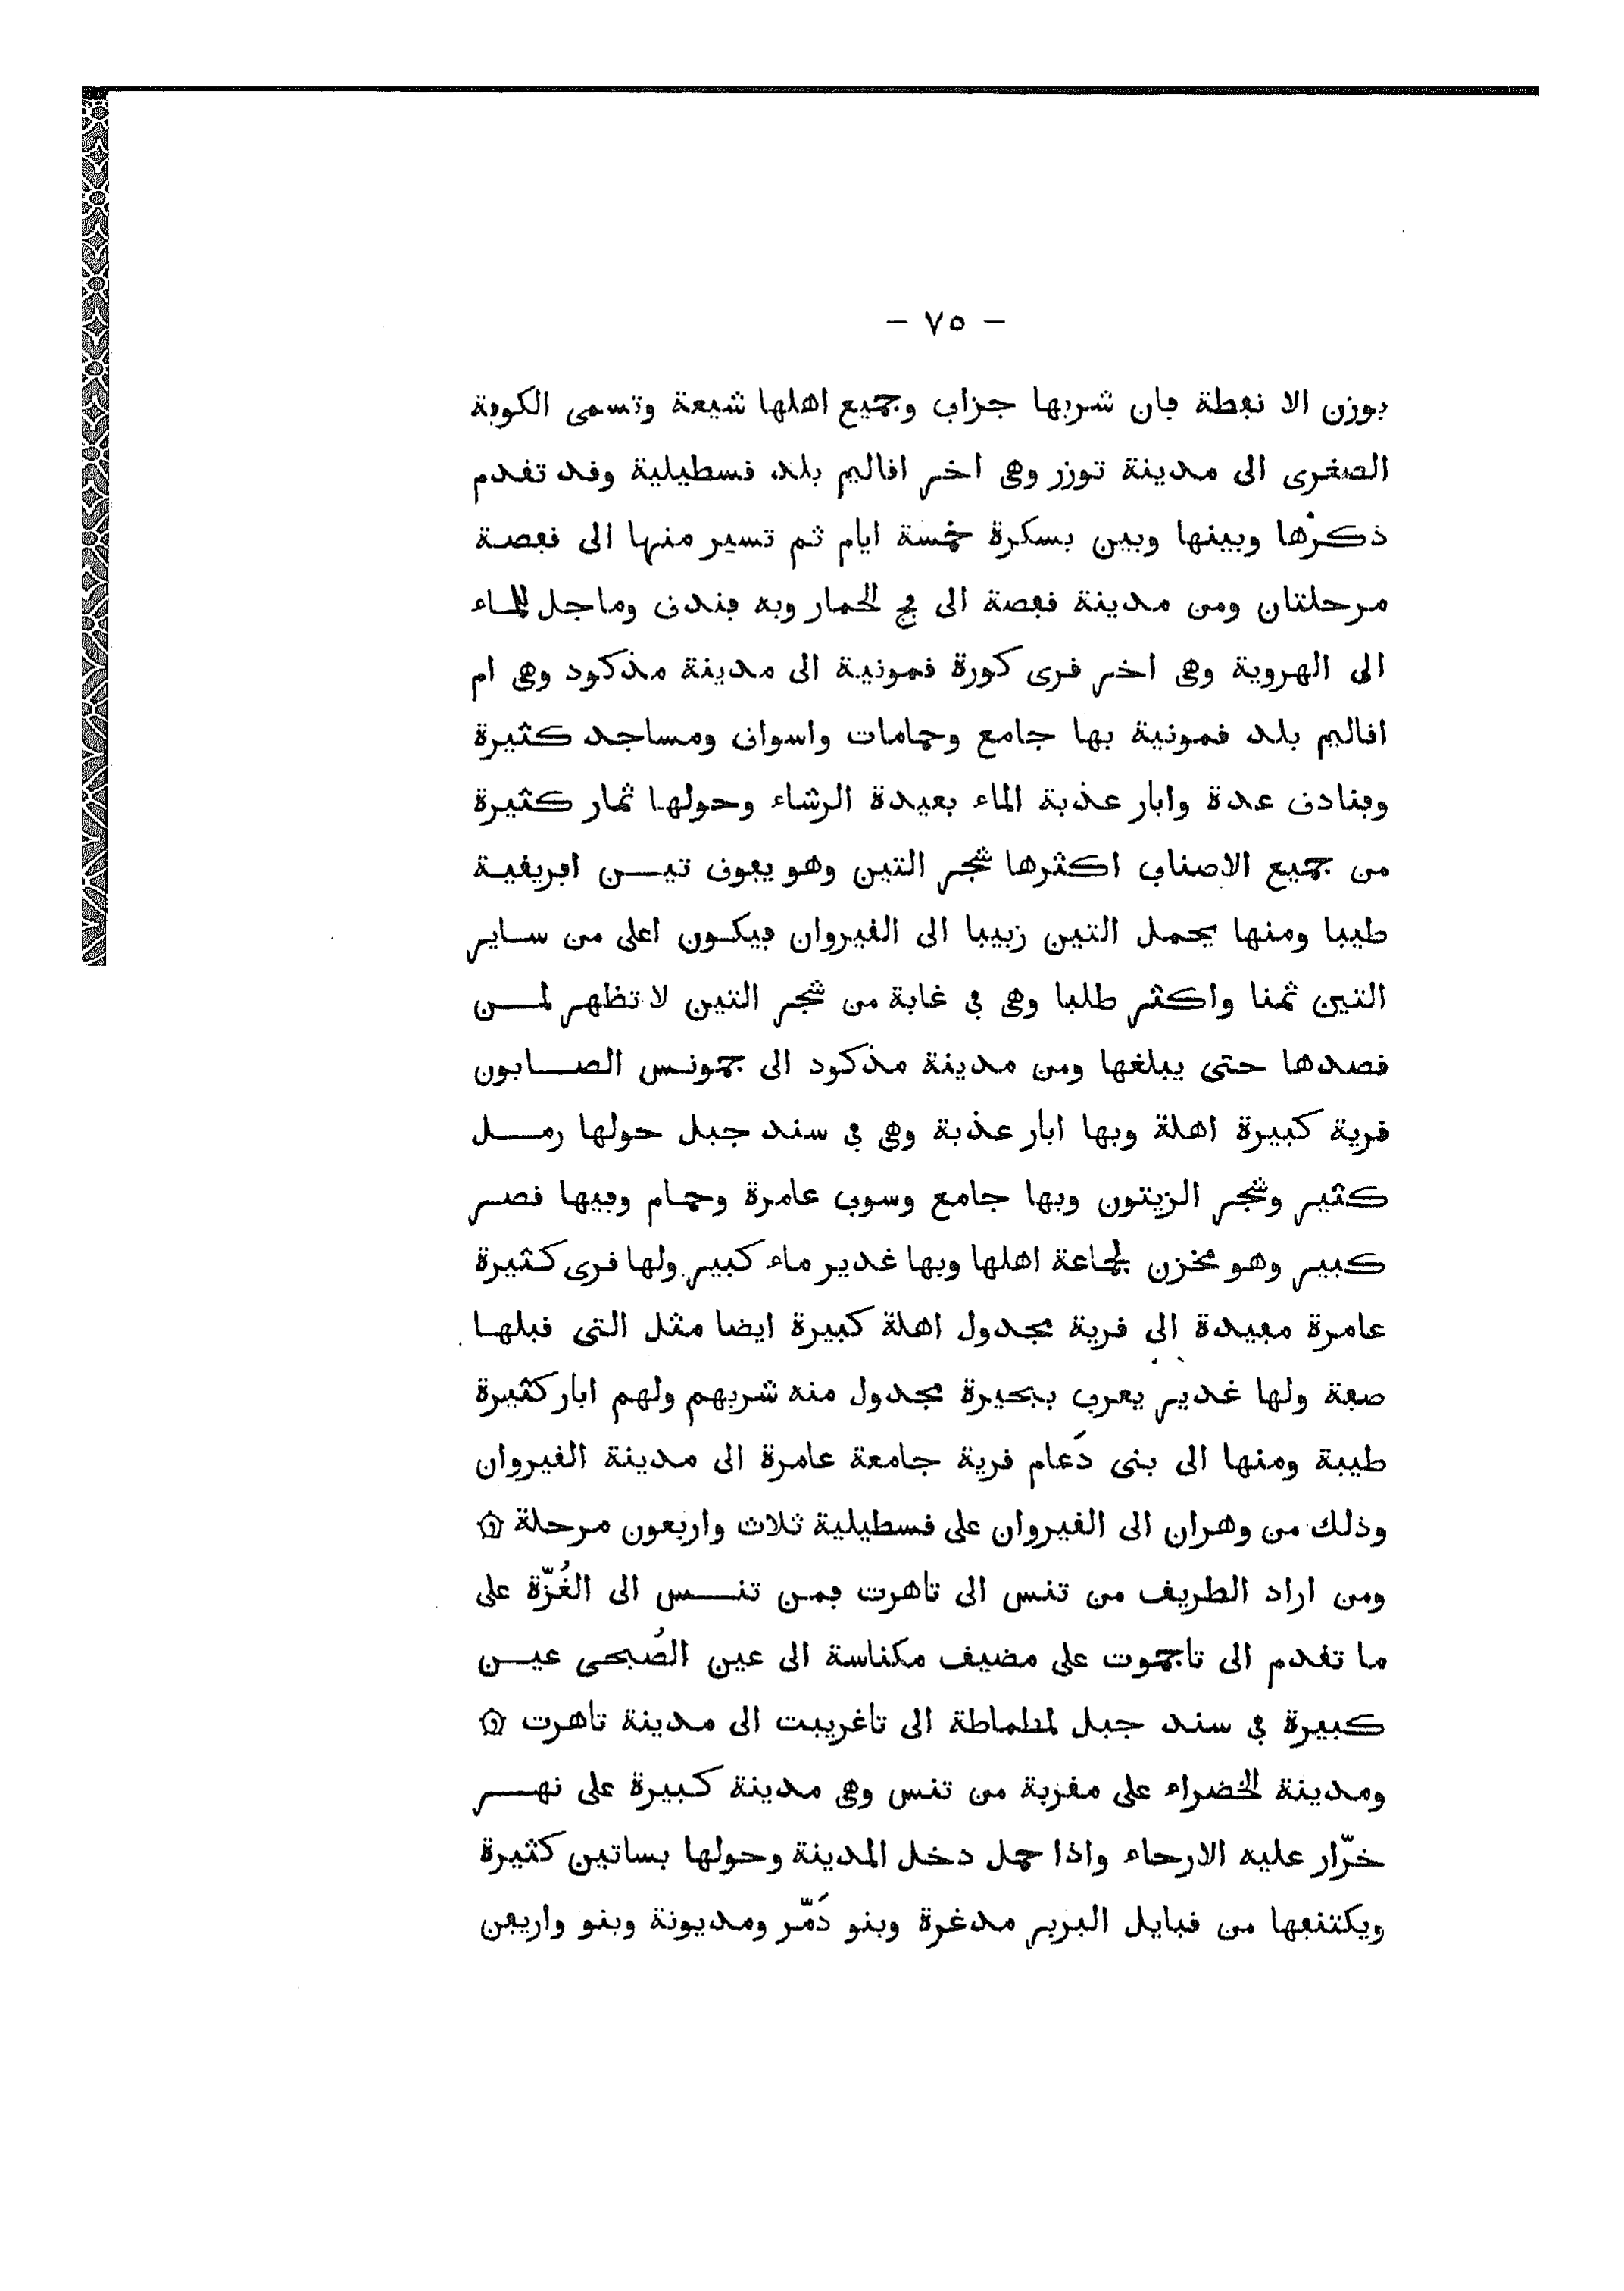 - ٧٥ -
بوزن الا نفطة فان شربها جزاف وجميع اهلها شيعة وتسمى الكوفة
الصغرى الى مدينة توزر وهى اخر اقاليم بلد قسطيلية وقد تقدم
ذكرها وبينها وبين بسكرة خمسة ايام ثم تسير منها الى قفصة
مرحلتان ومن مدينة قفصة الى فج الحمار وبه فندق وماجل للماء
الى الهروية وهى اخر قرى كورة قمونية الى مدينة مذكود وهى ام
اقاليم بلد قمونية بها جامع وحمامات واسواق ومساجد كثيرة
وفنادق عدة وابار عذبة الماء بعيدة الرشاء وحولها ثمار كثيرة
من جميع الاصناف اكثرها شجر التين وهو يفوق تين افريقية
طيبا ومنها يحمل التين زبيبا الى القيروان فيكون اعلى من ساير
التين ثمنا واكثر طلبا وهى فى غابة من شجر التين لا تظهر لمن
قصدها حتى يبلغها ومن مدينة مذكود الى جمونس الصابون
قرية كبيرة اهلة وبها ابار عذبة وهى فى سند جبل حولها رمل
كثير وشجر الزيتون وبها جامع وسوق عامرة وحمام وفيها قصر
كبير وهو مخزن لجماعة اهلها وبها غدير ماء كبير ولها قرى كثيرة
عامرة مفيدة الى قرية مجدول اهلة كبيرة ايضا مثل التى قبلها
صفة ولها غدير يعرف ببحيرة مجدول منه شربهم ولهم ابار كثيرة
طيبة ومنها الى بنى دَعام قرية جامعة عامرة الى مدينة القيروان
وذلك من وهران الى القيروان على قسطيلية ثلاث واربعون مرحلة ۞
ومن اراد الطريق من تنس الى تاهرت فمن تنس الى الغُزّة على
ما تقدم الى تاجموت على مضيق مكناسة الى عين الصُبحى عين
كبيرة فى سند جبل لمطماطة الى تاغريبت الى مدينة تاهرت ۞
ومدينة الخضراء على مقربة من تنس وهى مدينة كبيرة على نهر
خرّار عليه الارحاء واذا حمل دخل المدينة وحولها بساتين كثيرة
ويكتنفها من قبايل البربر مدغرة وبنو دَمّر ومديونة وبنو واريفن